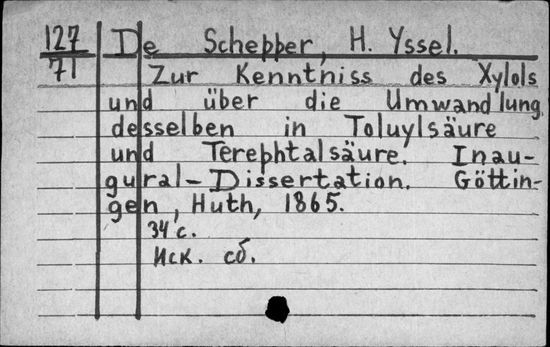 127 De Schepper, H. Yssel.
71 Zur Kenntniss des Xylols
und über die Umwandlung
desselben in Toluylsäure
und Terephtalsäure. Inau-
gural-Dissertation. Göttin-
gen, Huth, 1865.
34 с.
Иск. сб.